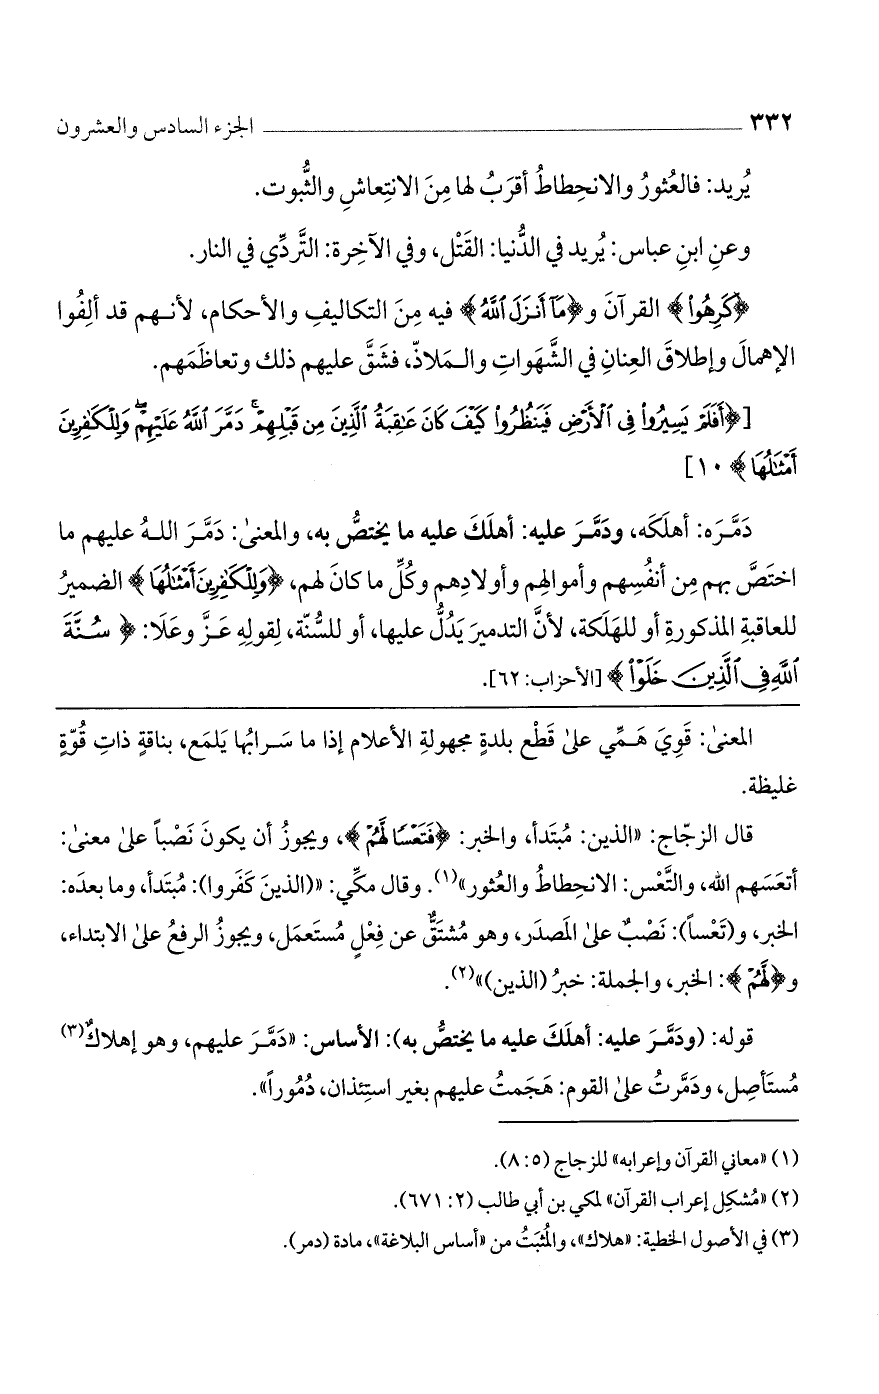 ٣٣٢ الجزء السادس والعشرون
يُريد: فالعُثورُ والانحِطاطُ أقرَبُ لها مِنَ الانتِعاشِ والثُّبوت.
وعنِ ابنِ عباس: يُريد في الدُّنيا: القَتْل، وفي الآخِرة: التَّردِّي في النار.
﴿كَرِهُوا۟﴾ القرآنَ و﴿مَآ أَنزَلَ ٱللَّهُ﴾ فيه مِنَ التكاليفِ والأحكام، لأنهم قد ألِفُوا
الإهمالَ وإطلاقَ العِنانِ في الشَّهَواتِ والمَلاذّ، فشَقَّ عليهم ذلك وتعاظَمَهم.
[﴿أَفَلَمْ يَسِيرُوا۟ فِى ٱلْأَرْضِ فَيَنظُرُوا۟ كَيْفَ كَانَ عَـٰقِبَةُ ٱلَّذِينَ مِن قَبْلِهِمْ ۚ دَمَّرَ ٱللَّهُ عَلَيْهِمْ ۖ وَلِلْكَـٰفِرِينَ
أَمْثَـٰلُهَا﴾ ١٠]
دَمَّرَه: أهلَكَه، ودَمَّرَ عليه: أهلَكَ عليه ما يختصُّ به، والمعنىٰ: دَمَّرَ اللهُ عليهم ما
اختَصَّ بهم مِن أنفُسِهم وأموالِهم وأولادِهم وكُلِّ ما كانَ لهم، ﴿وَلِلْكَـٰفِرِينَ أَمْثَـٰلُهَا﴾ الضميرُ
للعاقبةِ المذكورةِ أو للهَلَكة، لأنَّ التدميرَ يَدُلُّ عليها، أو للسُّنّة، لِقولِهِ عَزَّ وعَلَا: ﴿سُنَّةَ
ٱللَّهِ فِى ٱلَّذِينَ خَلَوْا۟﴾ [الأحزاب: ٦٢].
المعنىٰ: قَوِيَ هَمِّي علىٰ قَطْع بلدةٍ مجهولةِ الأعلام إذا ما سَرابُها يَلمَع، بناقةٍ ذاتِ قُوّةٍ
غليظة.
قال الزجّاج: «الذين: مُبتَدأ، والخبر: ﴿فَتَعْسًا لَّهُمْ﴾، ويجوزُ أن يكونَ نَصْباً علىٰ معنىٰ:
أتعَسَهم الله، والتَّعْس: الانحِطاطُ والعُثور»(١). وقال مكِّي: «(الذينَ كَفَروا): مُبتَدأ، وما بعدَه:
الخبر، و(تَعْساً): نَصْبٌ علىٰ المَصدَر، وهو مُشتَقٌّ عن فِعْلٍ مُستَعمَل، ويجوزُ الرفعُ علىٰ الابتداء،
و﴿لَّهُمْ﴾: الخبر، والجملة: خبرُ (الذين)»(٢).
قوله: (ودَمَّرَ عليه: أهلَكَ عليه ما يختصُّ به): الأساس: «دَمَّرَ عليهم، وهو إهلاكٌ(٣)
مُستَأصِل، ودَمَّرتُ علىٰ القوم: هَجَمتُ عليهم بغير استِئذان، دُمُوراً».
(١) «معاني القرآن وإعرابه» للزجاج (٥: ٨).
(٢) «مُشكِل إعراب القرآن» لمكي بن أبي طالب (٢: ٦٧١).
(٣) في الأصول الخطية: «هلاك»، والمُثبَتُ من «أساس البلاغة»، مادة (دمر).